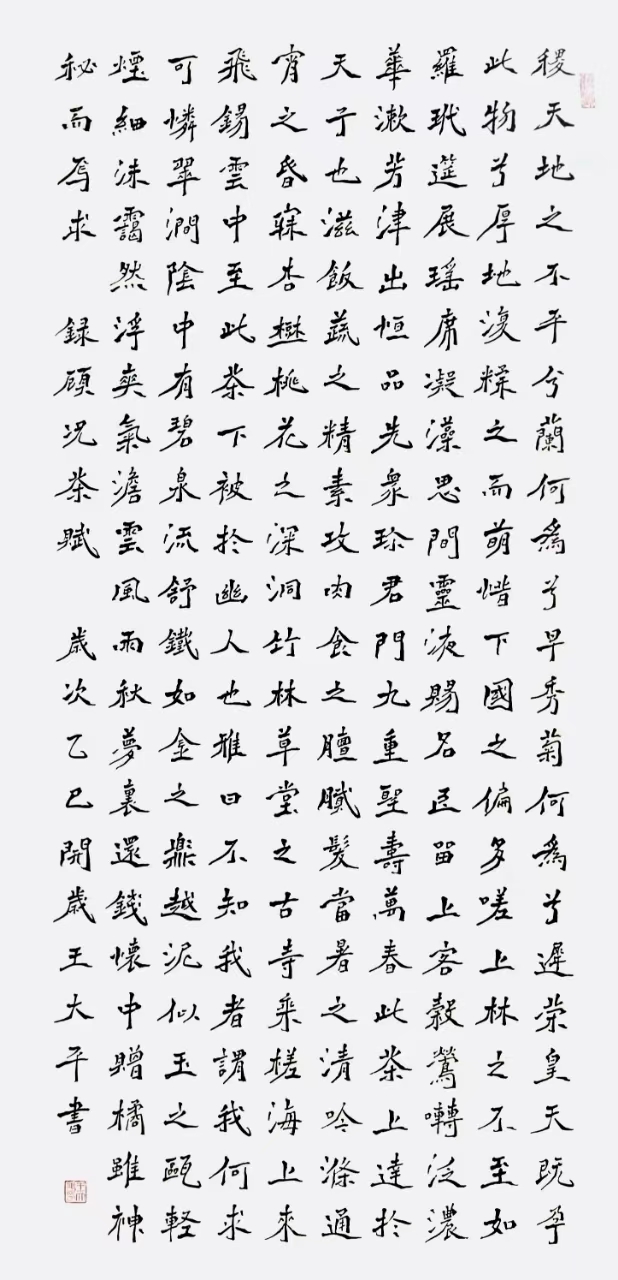 稷天地之不平兮蘭何爲兮早秀菊何爲兮遲荣皇天既孕
此物兮厚地復糅之而萌惜下國之偏多嗟上林之不至如
羅玳筵展瑶席凝藻思間靈液賜名臣留上客穀鶯囀泛濃
華漱芳津出恒品先衆珍君門九重聖壽萬春此茶上達於
天子也滋飯蔬之精素攻肉食之膻膩髮當暑之清吟滌通
宵之昏寐杏樹桃花之深洞竹林草堂之古寺乘槎海上來
飛錫雲中至此茶下被於幽人也雅曰不知我者謂我何求
可憐翠澗陰中有碧泉流舒鐵如金之鼎越泥似玉之甌輕
煙細沫靄然浮爽氣澹雲風雨秋夢裏還錢懷中贈橘雖神
秘而焉求 録顧况茶賦 歲次乙巳開歲王大平書